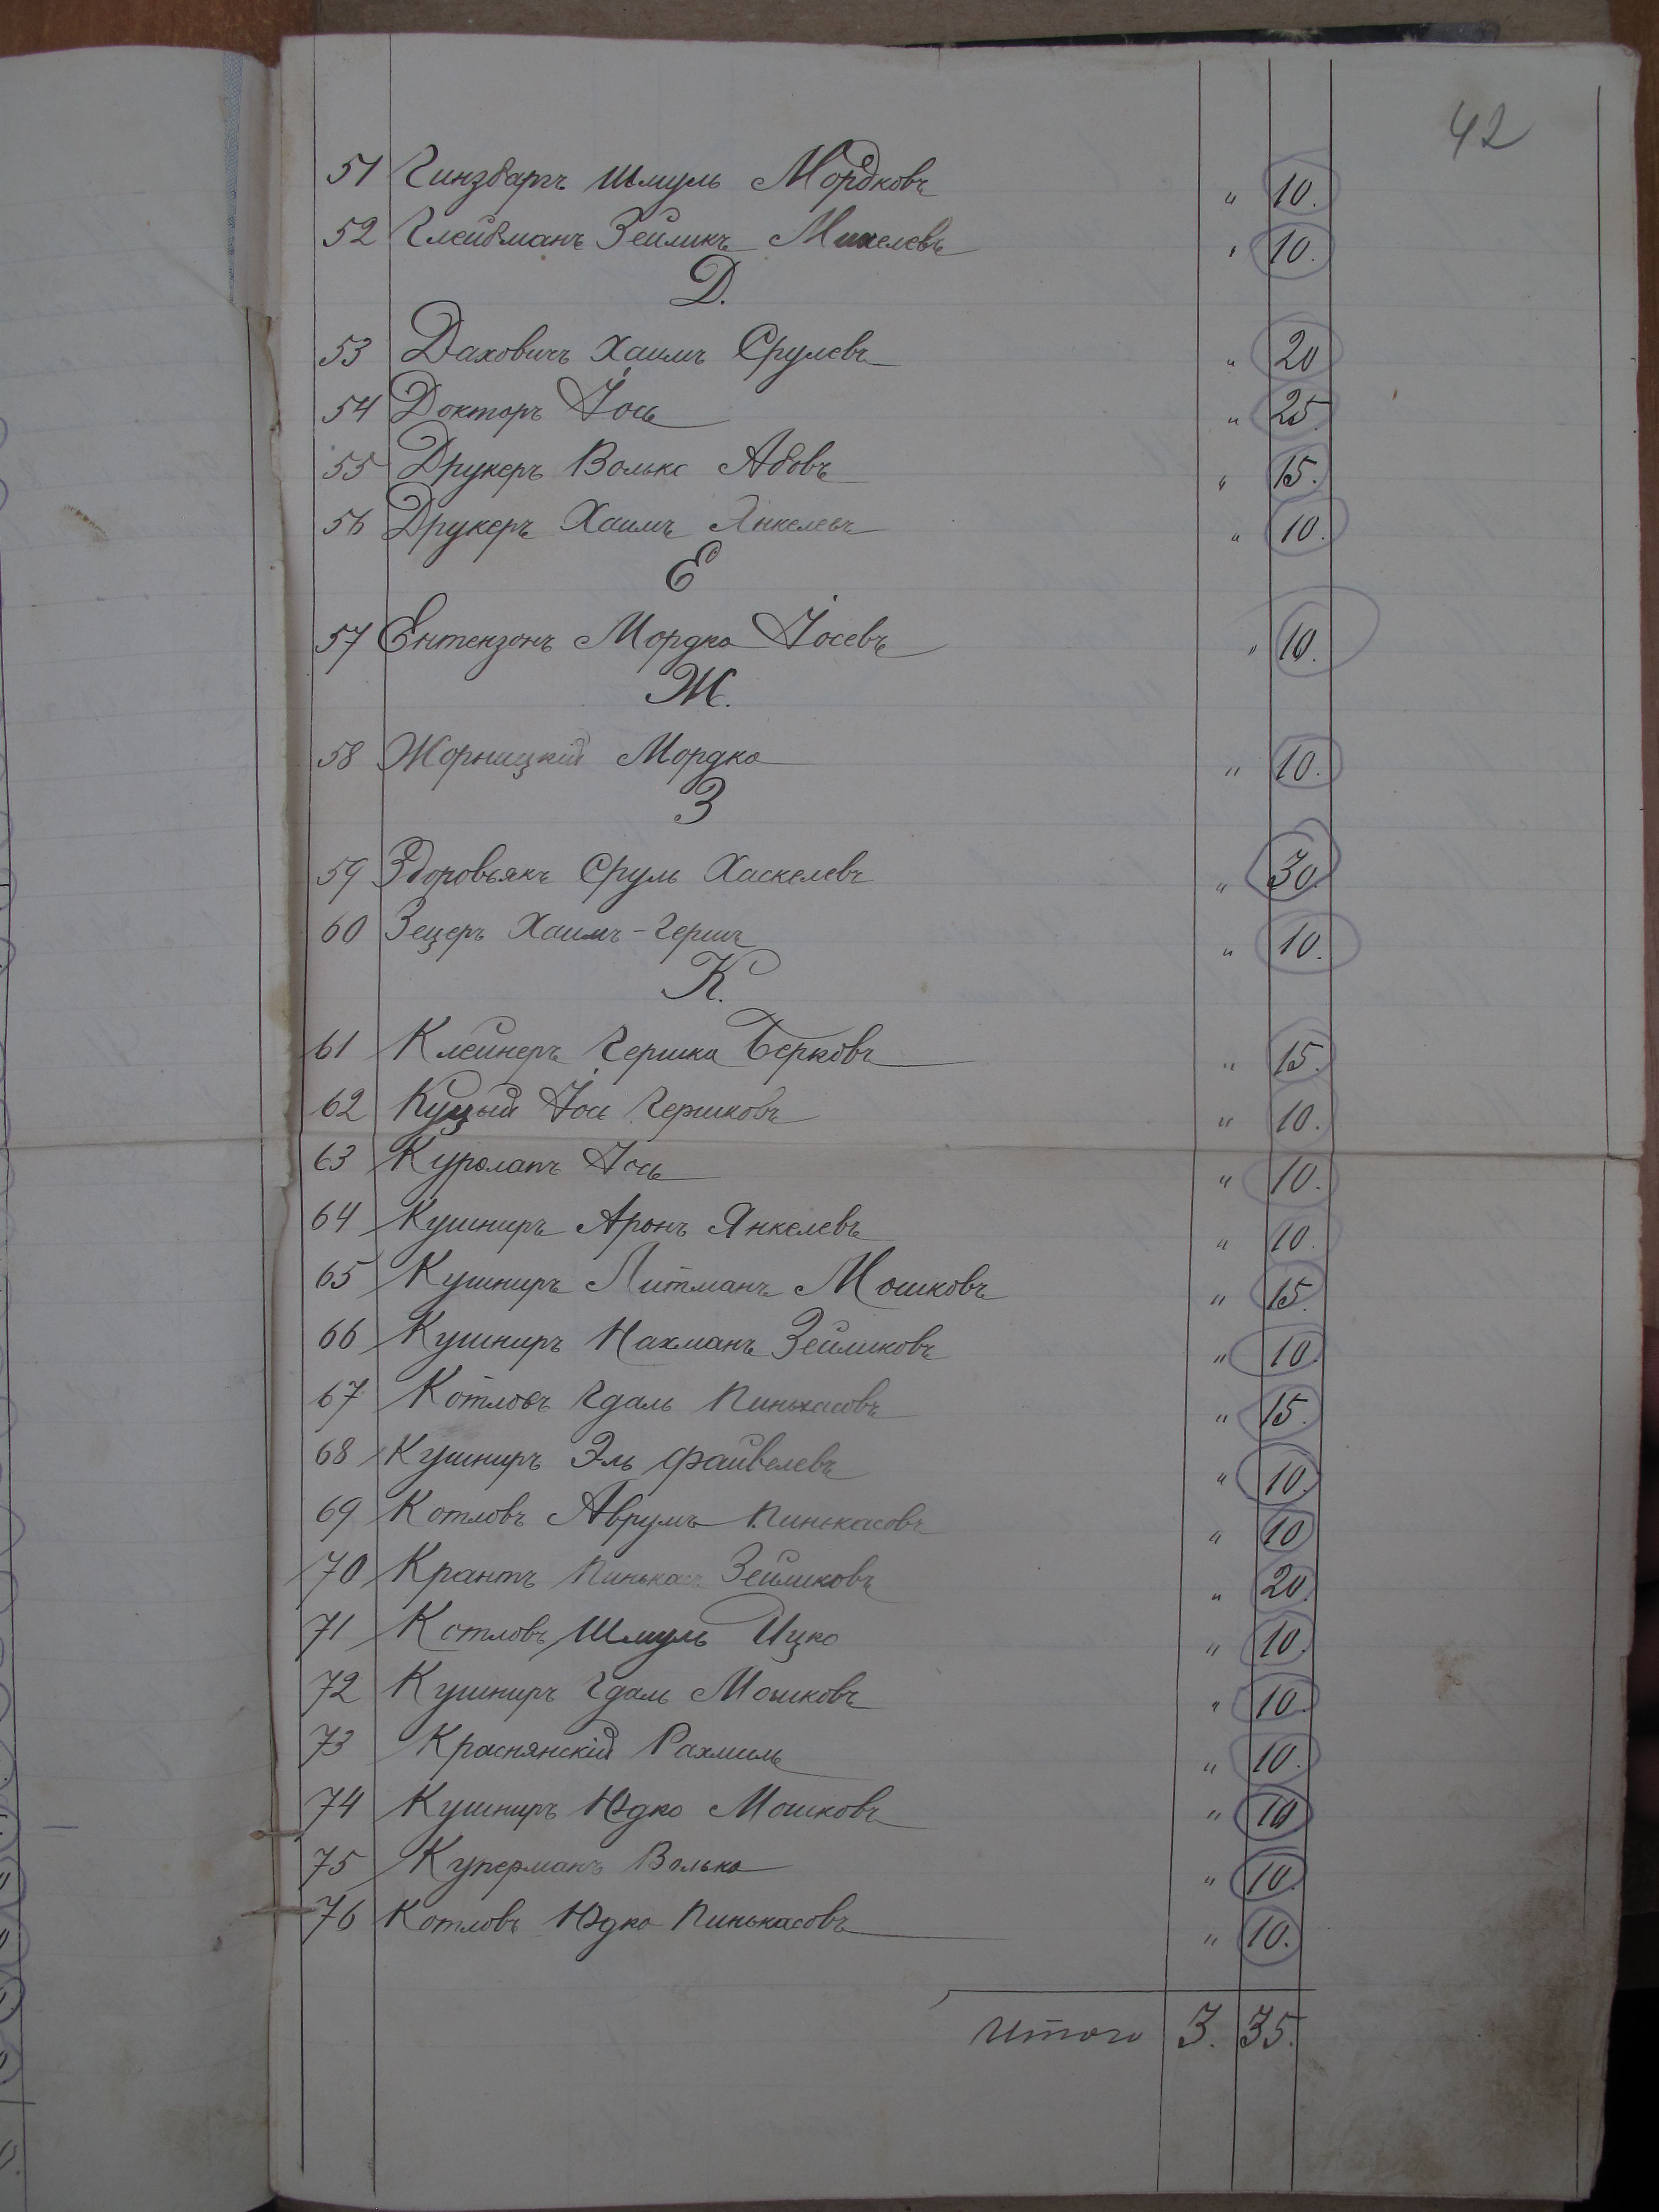 42
51 Гинзбаргъ Шмуль Мордковъ " 10.
52 Глейбманъ Зейликъ Михелевъ " 10.
Д.
53 Даховичъ Хаимъ Срулевъ " 20
54 Докторъ Іось " 25.
55 Друкеръ Волько Абовъ " 15.
56 Друкеръ Хаимъ Янкелевъ " 10.
Е
57 Ентензонъ Мордко Іосевъ " 10.
Ж.
58 Жорницкій Мордко " 10.
З
59 Здоровьякъ Сруль Хаскелевъ " 30.
60 Зецеръ Хаимъ-Гершъ " 10.
К.
61 Клейнеръ Гершка Берковъ " 15.
62 Куцый Іось Гершковъ " 10.
63 Куролапъ Іось " 10.
64 Кушниръ Аронъ Янкелевъ " 10.
65 Кушниръ Литманъ Мошковъ " 15.
66 Кушниръ Нахманъ Зейликовъ " 10.
67 Котловъ Гдаль Пинькасовъ " 15.
68 Кушниръ Эль Файвелевъ " 10.
69 Котловъ Аврумъ Пинькасовъ " 10
70 Крантъ Пинькас Зейликовъ " 20.
71 Котловъ Шмуль Ицко " 10.
72 Кушниръ Гдаль Мошковъ " 10.
73 Краснянскій Рахмиль " 10.
74 Кушниръ Юдко Мошковъ " 10
75 Куперманъ Волько " 10.
76 Котловъ Юдко Пинькасовъ " 10.
Итого 3. 35.